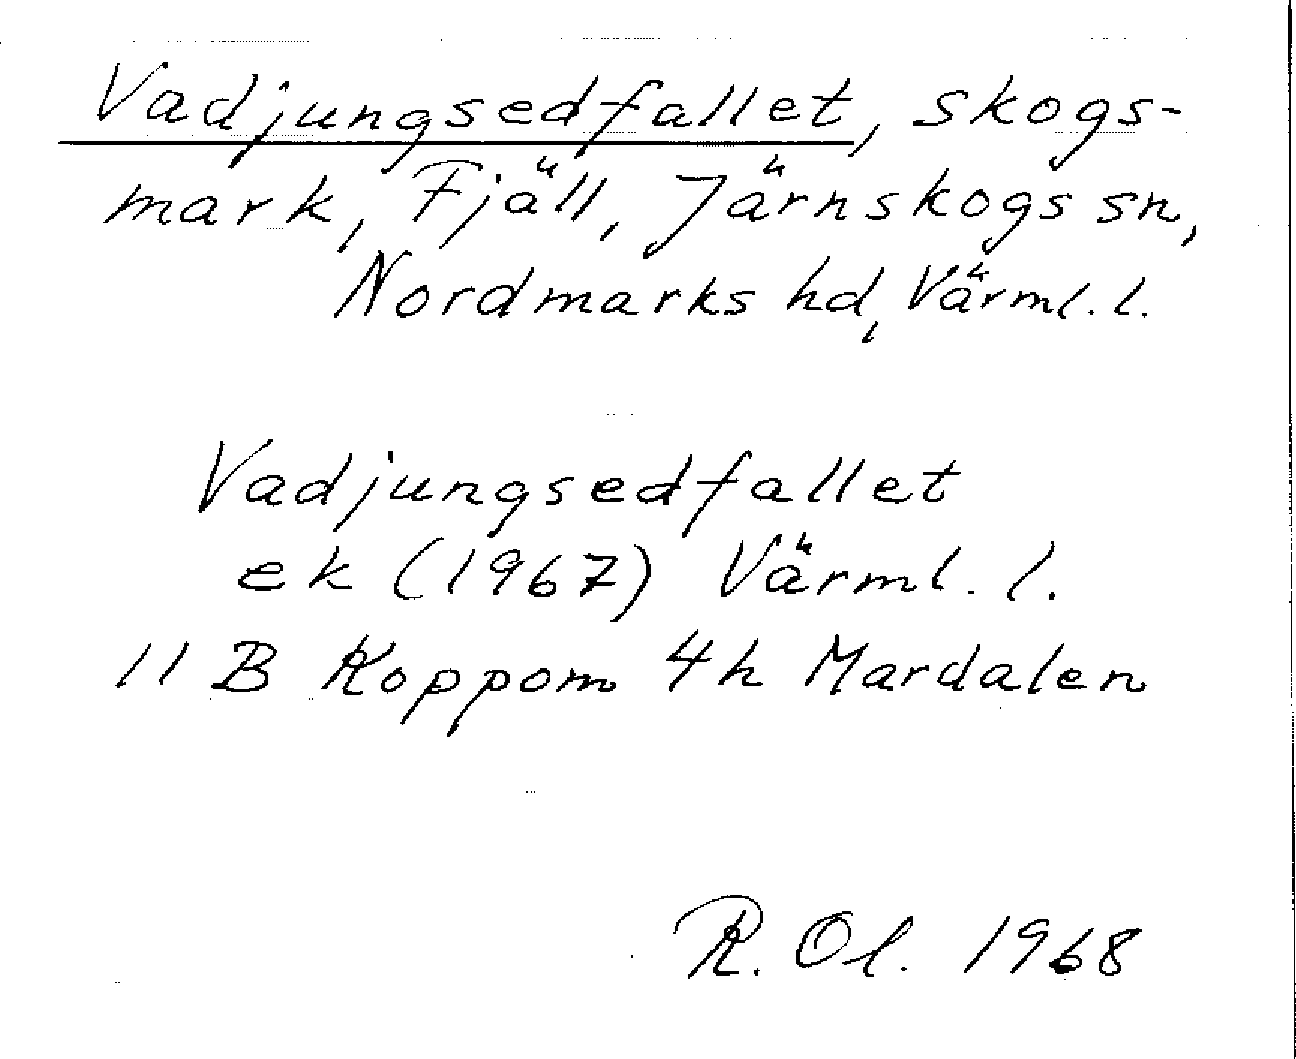 Vadjungsedfallet, skogs-
mark, Fjäll, Järnskogs sn,
Nordmarks hd, Värml. l.
Vadjungsedfallet
ek (1967) Värml. l.
11 B Koppom 4h Mardalen
R. Ol. 1968